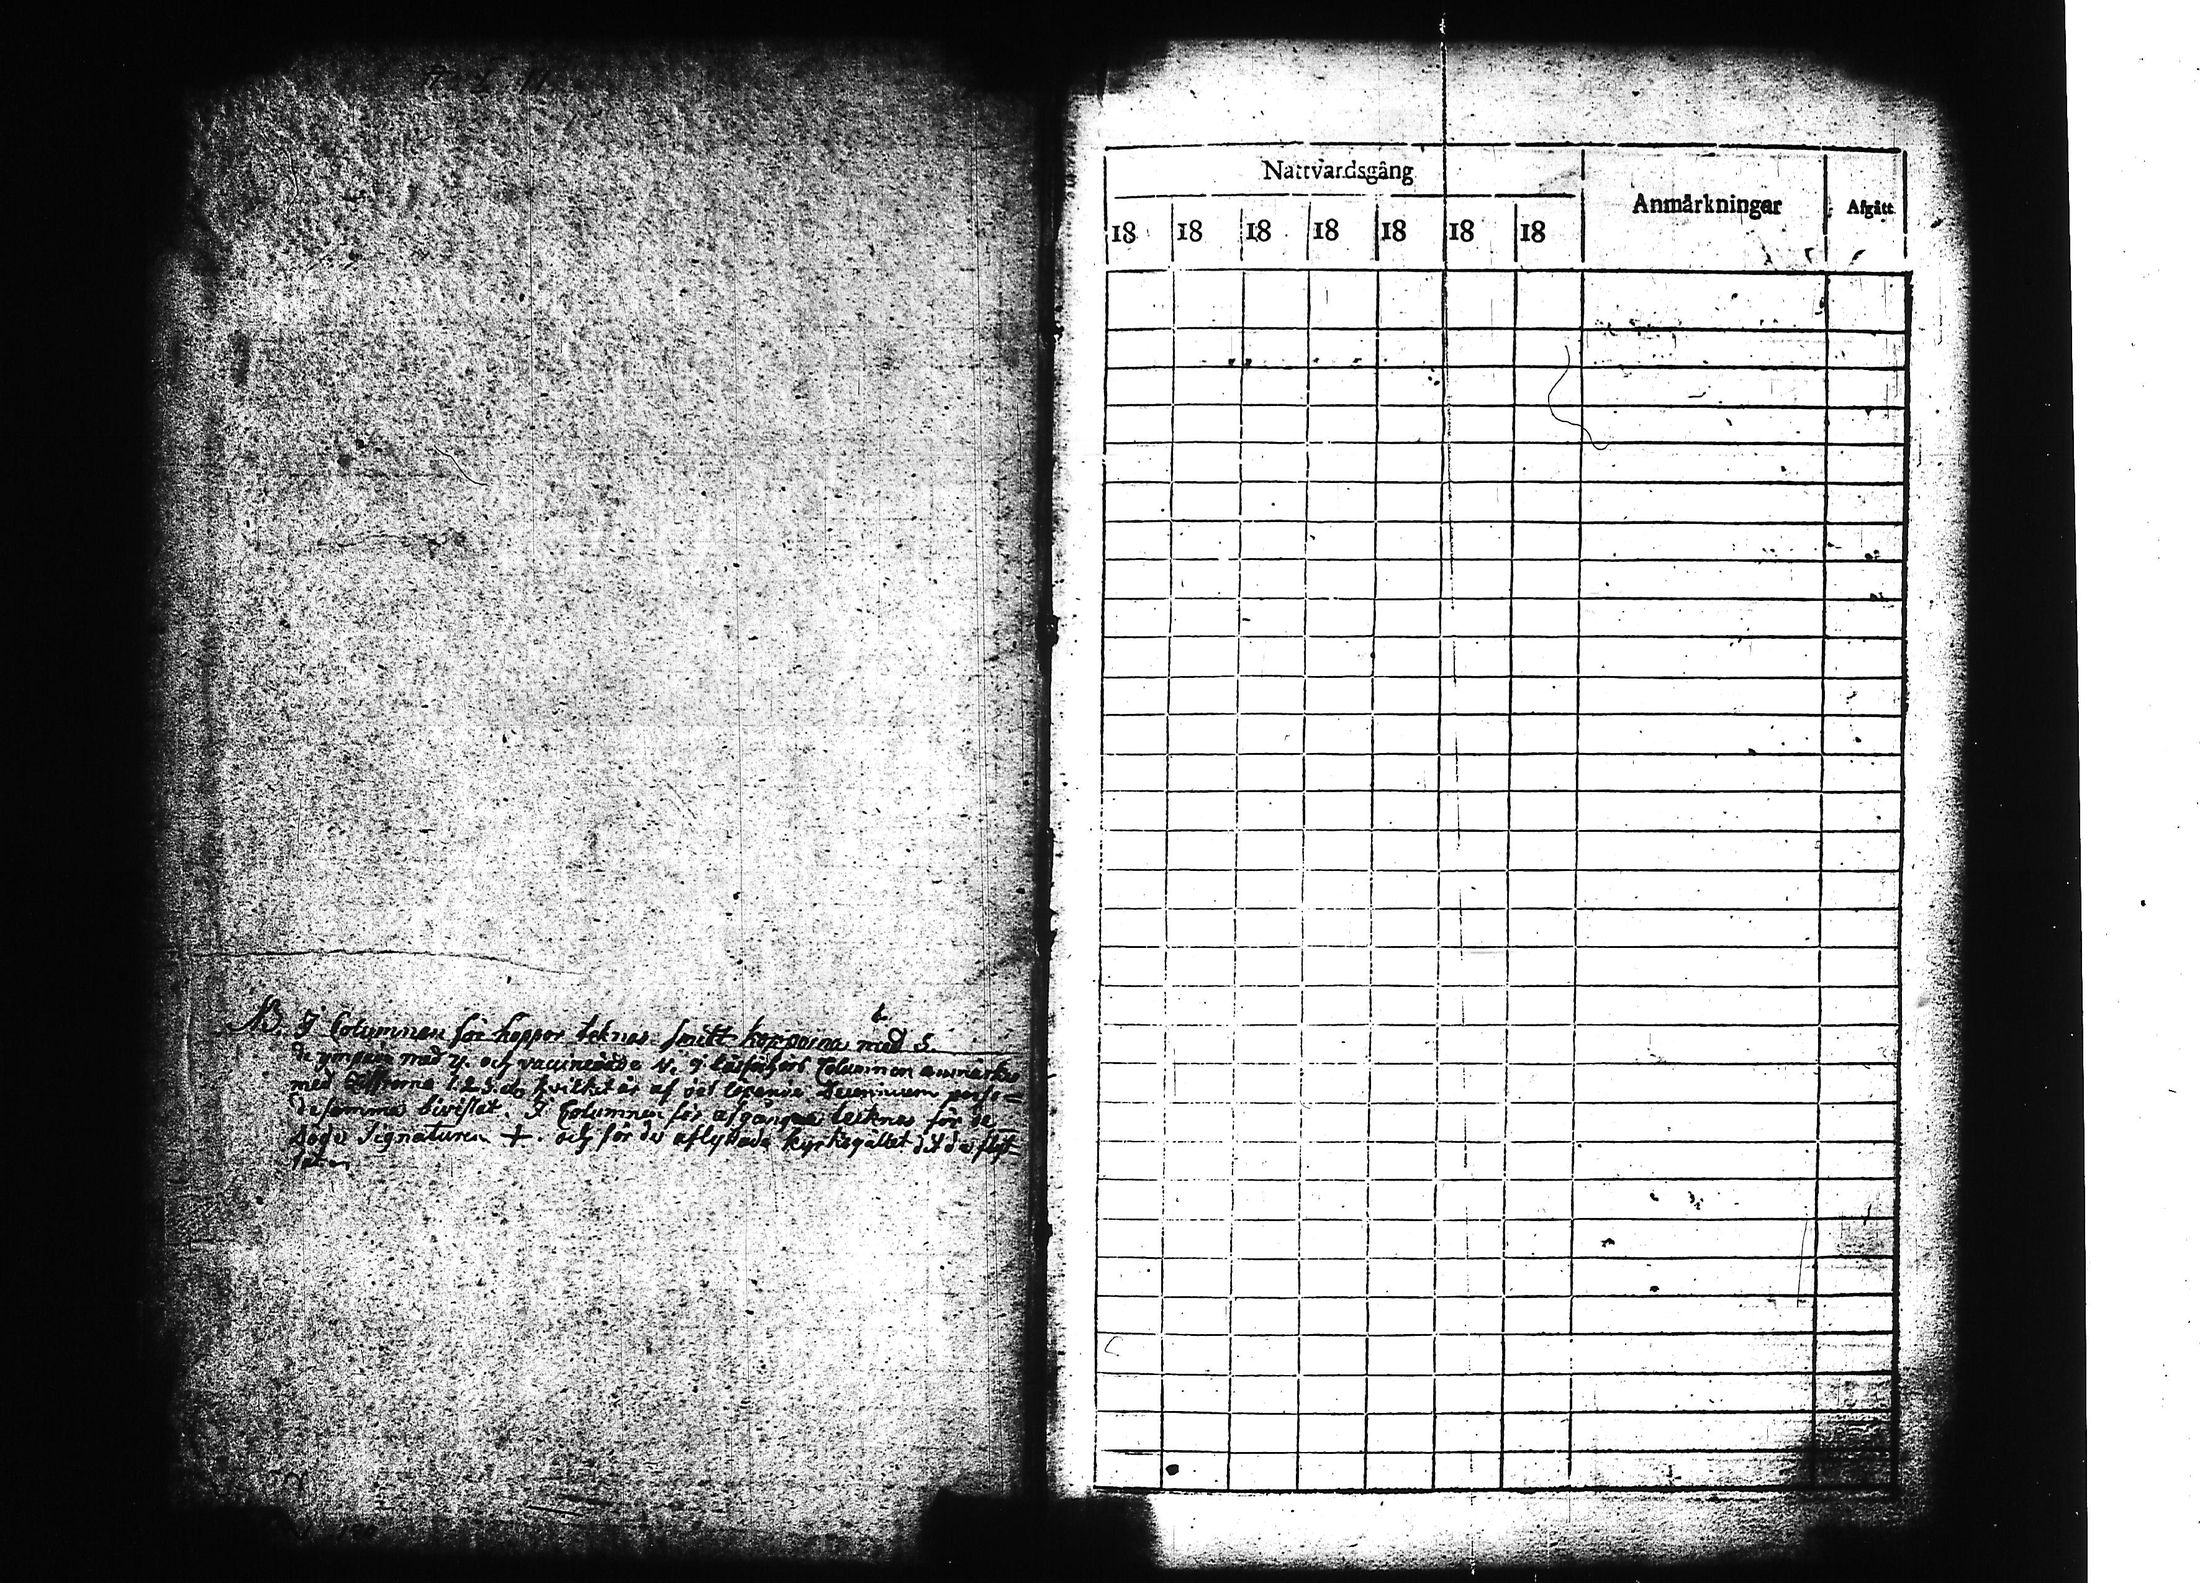 NB. I Columnen för koppor teknas smitt kopporna med S.
de ympade med y. och vaccinerade V. I läsförhörs Columnen anmärkes
med Ziffrorna 1.2.3. hvilket år af det löpande Decennium
desamma bivistat. I Columnen för afgångna tecknas för de
döde Signaturen +. och för de aflyttade kyrkogället dit de flyt=
Nattvardsgång
Anmårkningar
Afgått
18 18 18 18 18 18 18